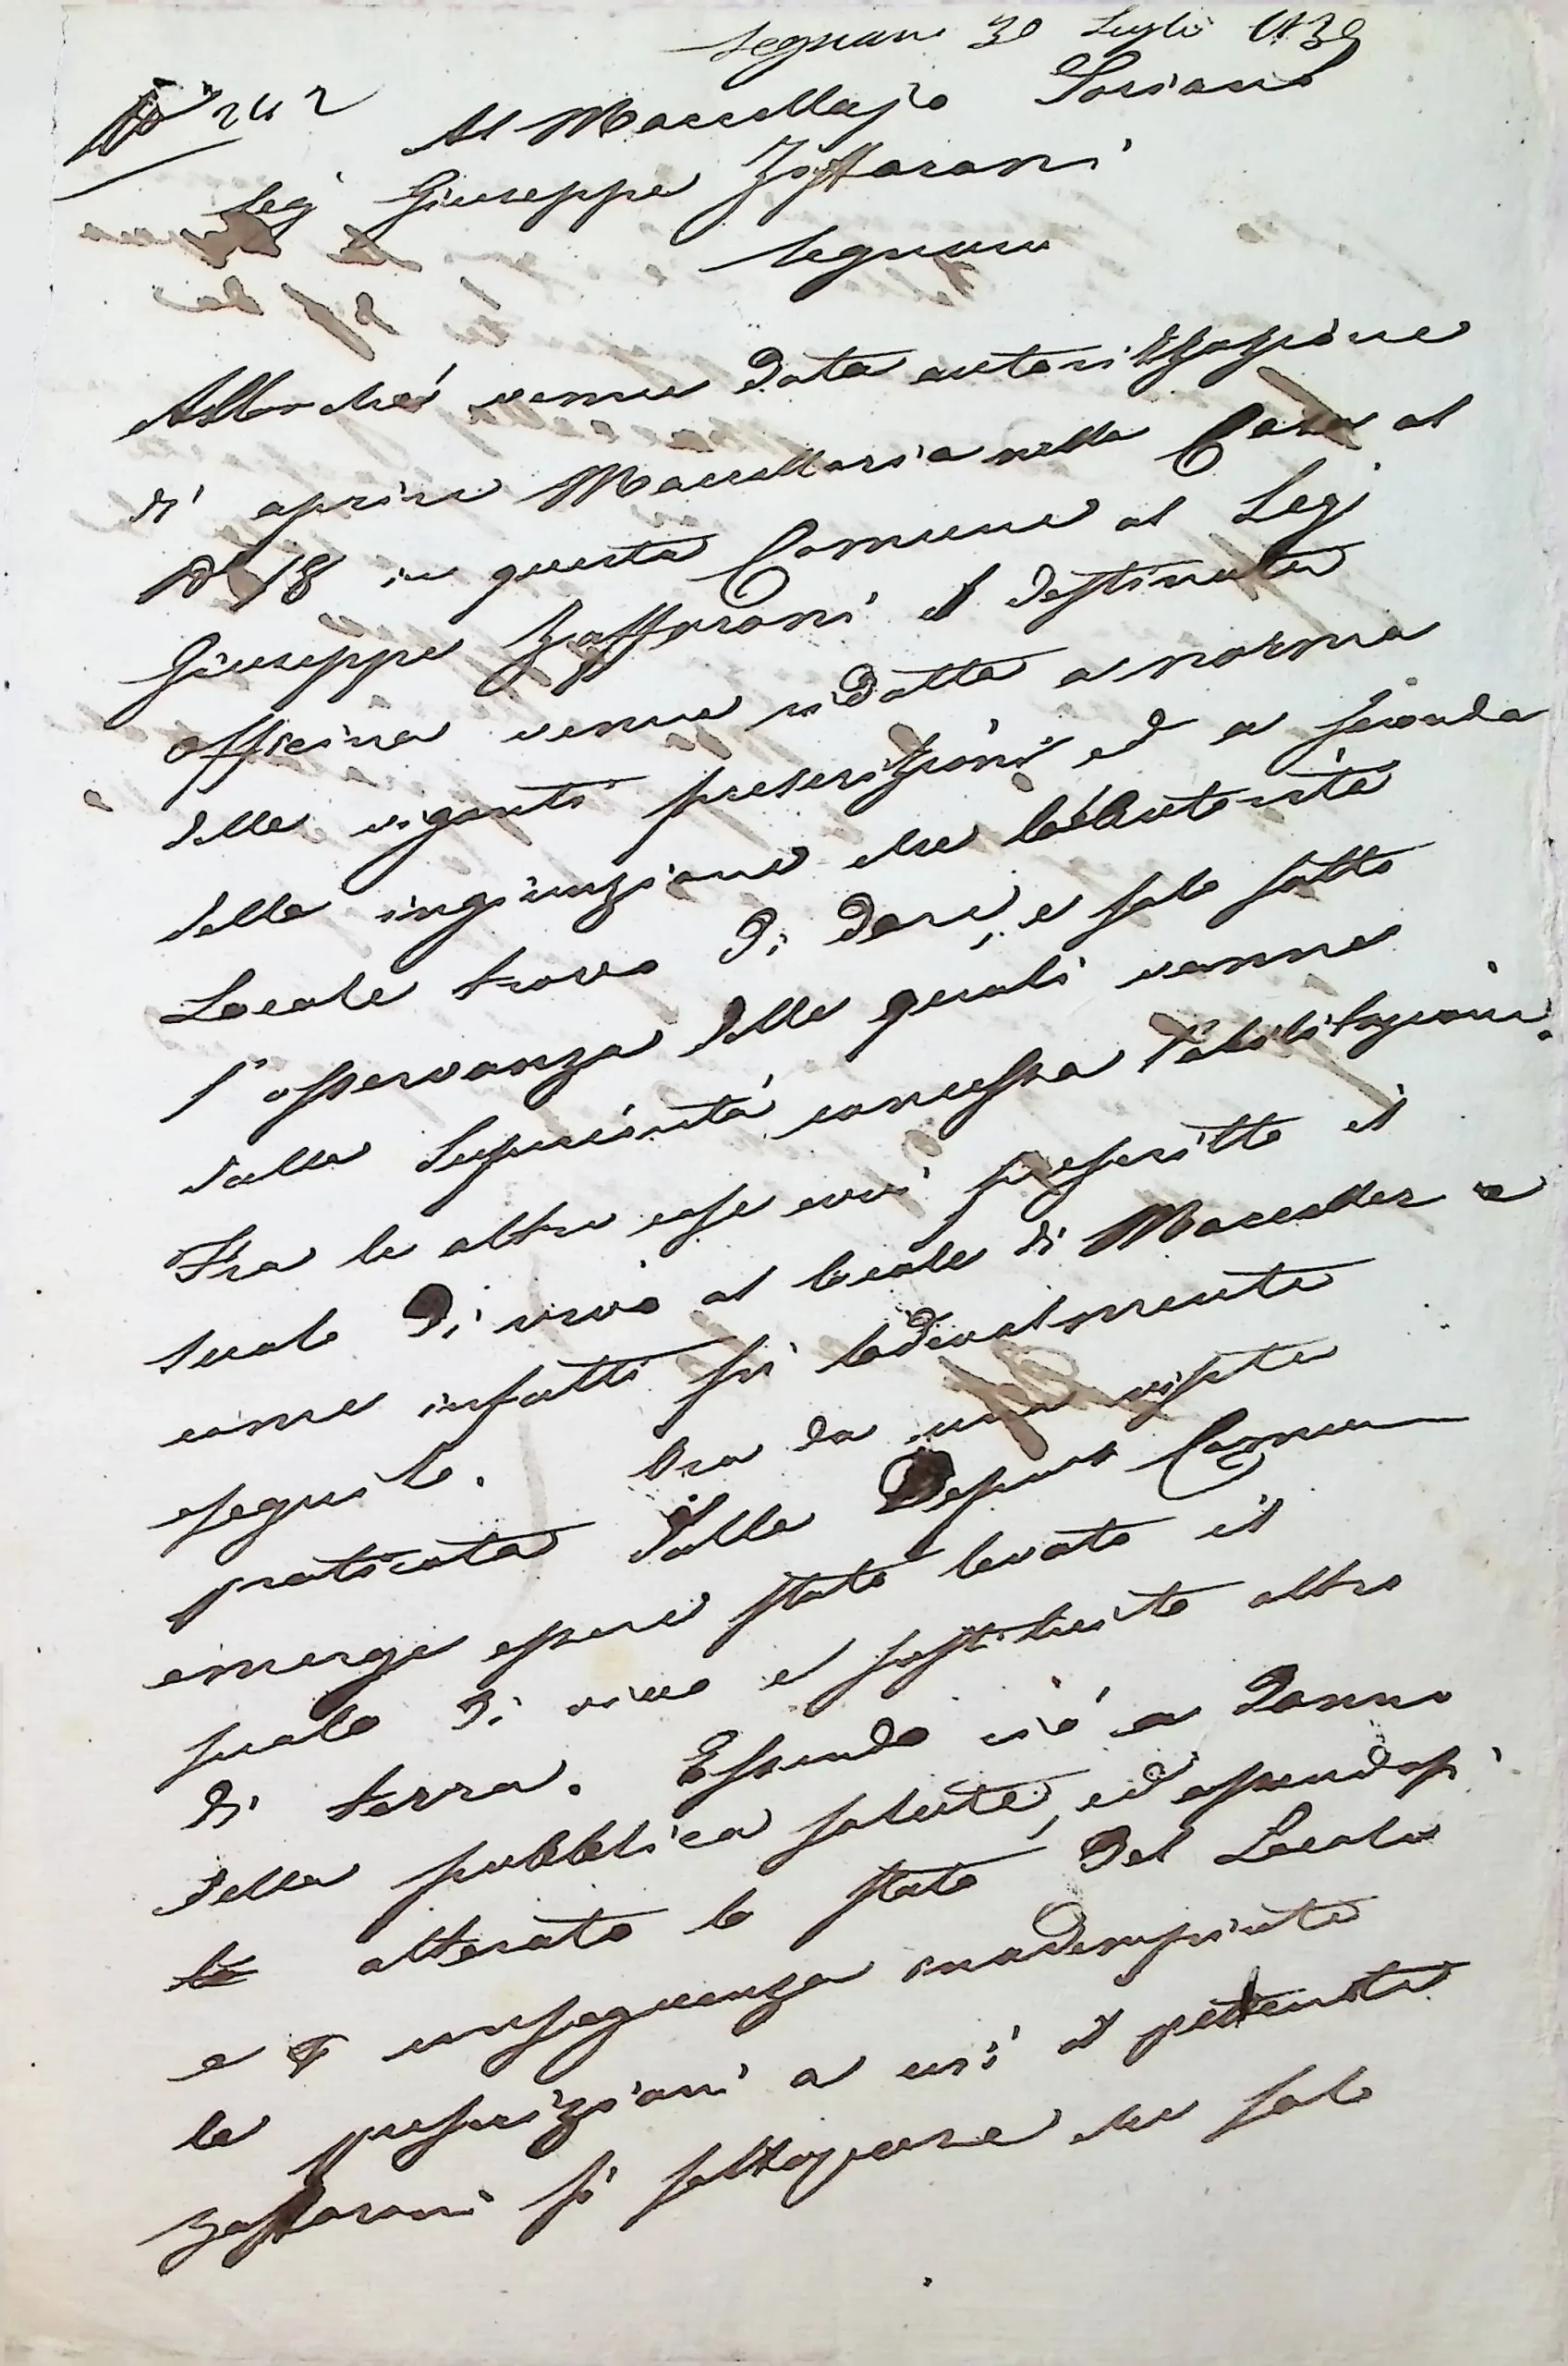 Legnano 30 Luglio 1839
N° 242
Al Macellajo Soriano
Seg Giuseppe Zaffaroni
Legnano
Allorchè venne data autorizzazione
di aprire Macelleria nella Casa al
N° 18 in questa Comune al Seg
Giuseppe Zaffaroni il destinato
officina venne ridotta a norma
delle viganti prescrizioni ed a seconda
delle ingiunzione che l'Autorità
Locale trovò di dare, e solo sotto
l'osservanza delle quali venne
dalla Superiorità concessa l'abilitazione.
Fra le altre cose evvi prescritto il
suolo di vivo al locale di Macello e
come infatti fù lodevolmente
eseguito. Ora da una visita
praticata dalla Deput Comun
emerge essere stato levato il
suolo di vivo e sostituito altro
di terra. Essendo ciò a danno
della pubblica salute, ed essendosi
alterato lo stato del Locale
e conseguenza inadempiute
le prescrizioni a cui il petente
Zaffaroni si sottopose che solo